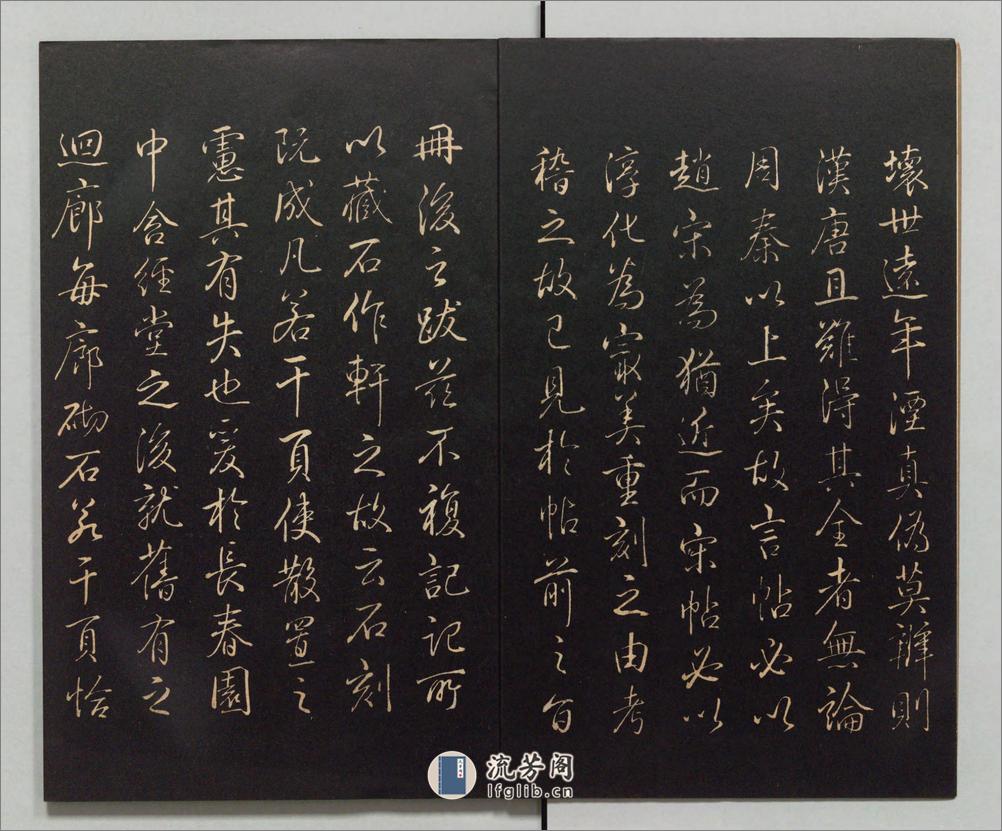 壞世遠年湮真偽莫辨則
漢唐且難得其全者無論
周秦以上矣故言帖必以
趙宋為猶近而宋帖必以
淳化為寂美重刻之由考
稽之故已見於帖前之旨
冊後之跋茲不複記記所
以藏石作軒之故云石刻
既成凡若干頁使散置之
慮其有失也爰於長春園
中含經堂之後就舊有之
迴廊每廊砌石若干頁恰
流芳阁
lfglib.cn